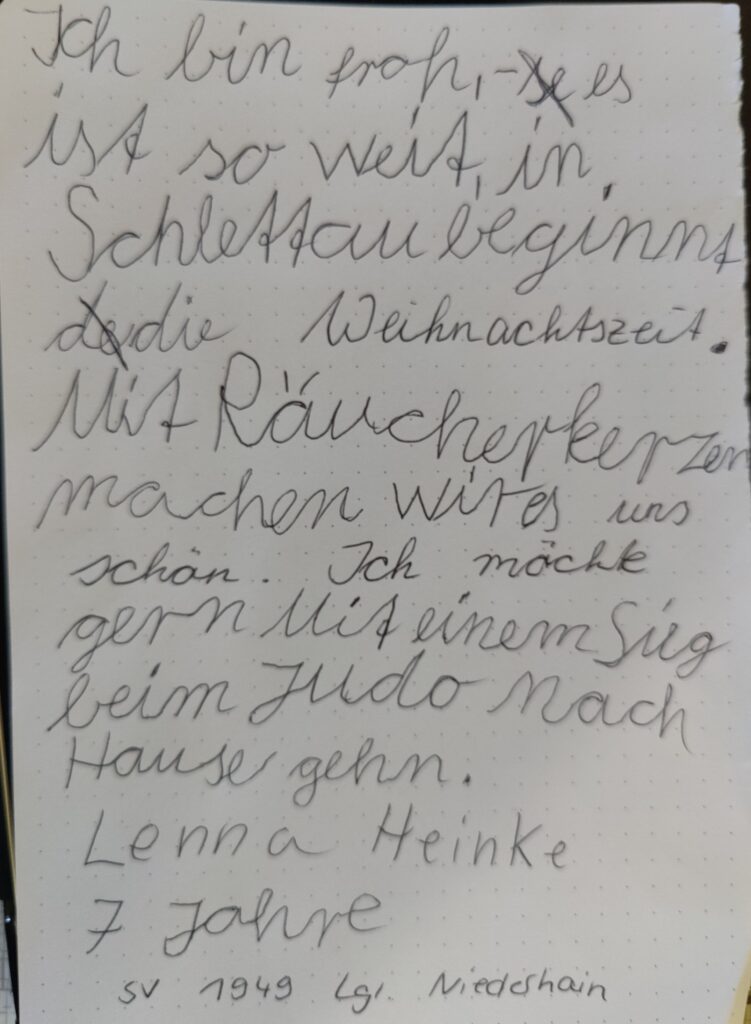 Ich bin froh, - es
ist so weit, in,
Schlettau beginnt
die Weihnachtszeit.
Mit Räucherkerzen
machen wir es uns
schön. Ich möchte
gern Mit einem Sieg
beim Judo Nach
Hause gehn.
Lenna Heinke
7 Jahre
SV 1949 Lgl. Niederhain